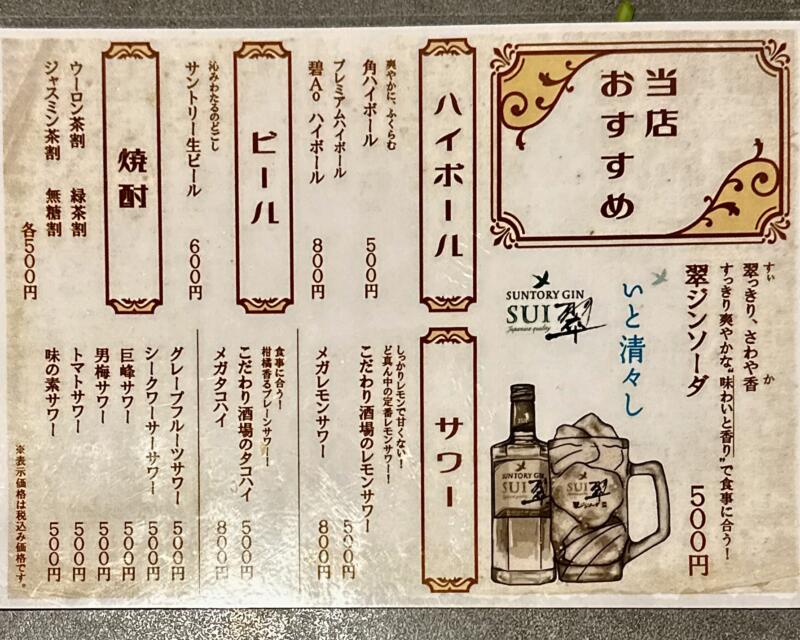 当店
おすすめ
翠っきり、さわや香
すぃ
か
すっきり爽やかな"味わいと香り"で食事に合う!
翠ジンソーダ
500円
いと清々し
SUNTORY GIN
SUI 翠
Japanese quality
SUNTORY GIN
SUI 翠
SUI 翠
翠ジンソーダ
ハイボール
爽やかに、ふくらむ
角ハイボール 500円
プレミアムハイボール
碧Ao ハイボール 800円
ビール
沁みわたるのどごし
サントリー生ビール 600円
焼酎
ウーロン茶割 緑茶割
ジャスミン茶割 無糖割
各500円
サワー
しっかりレモンで甘くない!
ど真ん中の定番レモンサワー!
こだわり酒場のレモンサワー 500円
メガレモンサワー 800円
食事に合う!
柑橘香るプレーンサワー!
こだわり酒場のタコハイ 500円
メガタコハイ 800円
グレープフルーツサワー 500円
シークワーサーサワー 500円
巨峰サワー 500円
男梅サワー 500円
トマトサワー 500円
味の素サワー 500円
※表示価格は税込み価格です。